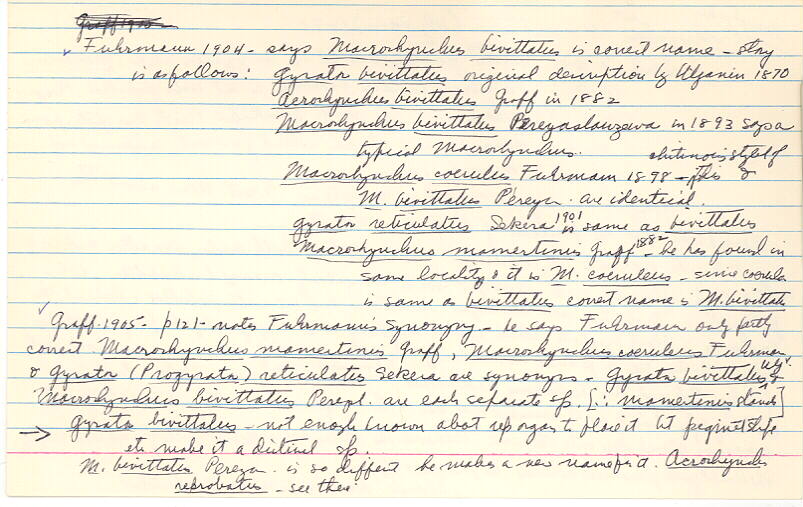 Graff 1905
Fuhrmann 1904 - says Macrorhynchus bivittatus is correct name - story
is as follows: Gyrator bivittatus original description by Uljanin 1870
Acrorhynchus bivittatus Graff in 1882
Macrorhynchus bivittatus Pereyaslawzewa in 1893 says a
typical Macrorhynchus. chitinois stylet of
Macrorhynchus coerulus Fuhrmann 1898 - this &
M. bivittatus Pereyen. are identical.
Gyrator reticulatus Sekera 1901 is same as bivittatus
Macrorhynchus mamertinis Graff 1882 - he has found in
same locality & it is M. coeruleus - since coerulea
is same as bivittatus correct name is M. bivittatus
Graff. 1905 - p121 - notes Fuhrmann's synonymy - he says Fuhrman only partly
correct. Macrorhynchus mamertinis Graff, Macrorhynchus coeruleus Fuhrman,
& Gyrata (Progyrata) reticulatus Sekera are synonyms - Gyrata bivittatus Ulj. &
Macrorhynchus bivittatus Perezl. are each separate sp. [∴ mamertinis stands]
Gyrata bivittatus - not enough known about rep organs to place it but pigment stripe
etc make it a distinct sp.
M. bivittatus Pereyen. is so different he makes a new name for it. Acrorhynchus
reprobatus - see there